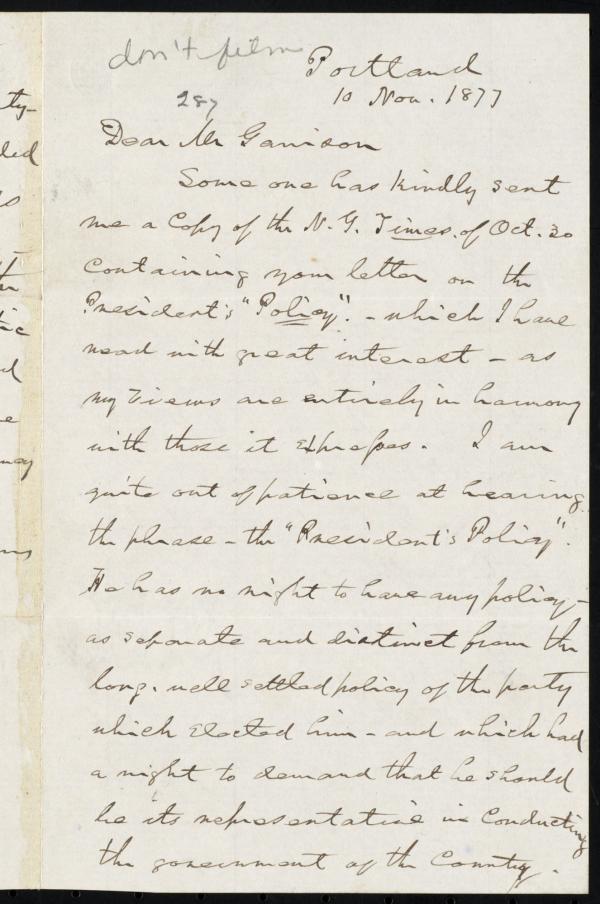 don't film
Portland
287
10 Nov. 1877
Dear Mr Garrison
Some one has kindly sent
me a Copy of the N. Y. Times. of Oct. 30
containing your letter on the
President's "Policy". - which I have
read with great interest - as
my views are entirely in harmony
with those it expresses. I am
quite out of patience at hearing
the phrase - the "President's Policy".
He has no right to have any policy -
as separate and distinct from the
long. well settled policy of the party
which elected him - and which had
a right to demand that he should
be its representative in Conducting
the government of the Country.